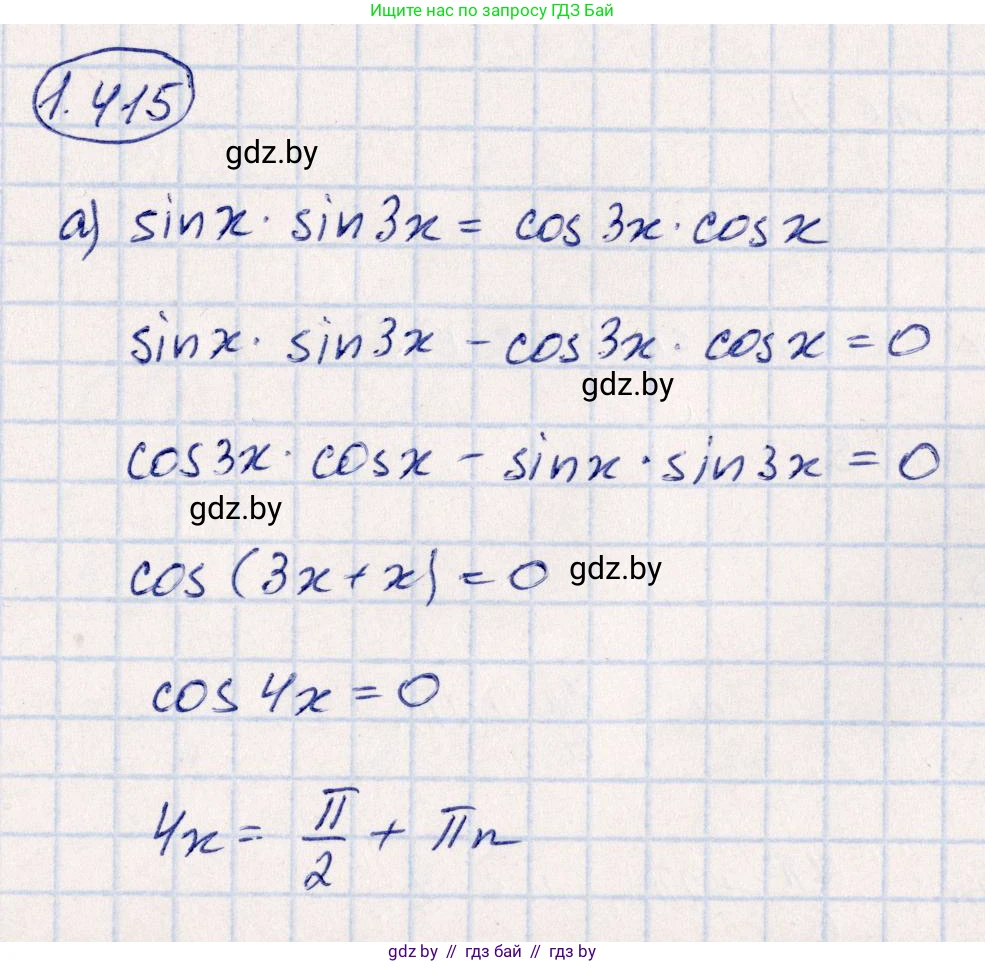 Ищите нас по запросу ГДЗ Бай
1.415
gdz.by
а) sinx · sin3x = cos3x · cosx
sinx · sin3x - cos3x · cosx = 0
gdz.by
cos3x · cosx - sinx · sin3x = 0
gdz.by
cos (3x + x) = 0 gdz.by
cos 4x = 0
4x = π/2 + πn
gdz.by // гдз бай // gdz.by